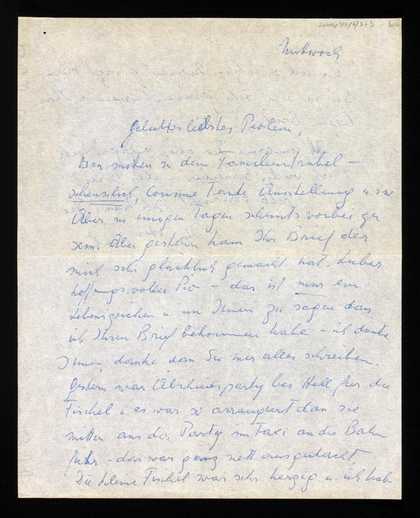 Mittwoch
geliebtes liebstes Piolein,
Bin mitten in dem Familientrubel –
scheusslich, Cousine Tante Ausstellung u.s.w
Aber in einigen Tagen scheints vorbei zu
sein. Aber gestern kam Ihr Brief der
mich sehr glücklich gemacht hat. Lieber
hoffnungsvoller Pio – das ist nur ein
Lebenszeichen u um Ihnen zu sagen dass
ich Ihren Brief bekommen habe – ich danke
Ihnen, danke dass Sie mir alles schreiben.
Gestern war Abschiedsparty bei Hell für die
Fischel u es war so arrangiert dass sie
mitten aus der Party im Taxi an die Bahn
fuhr – das war ganz nett ausgedacht
Die kleine Fischel war sehr herzig u. ich hab